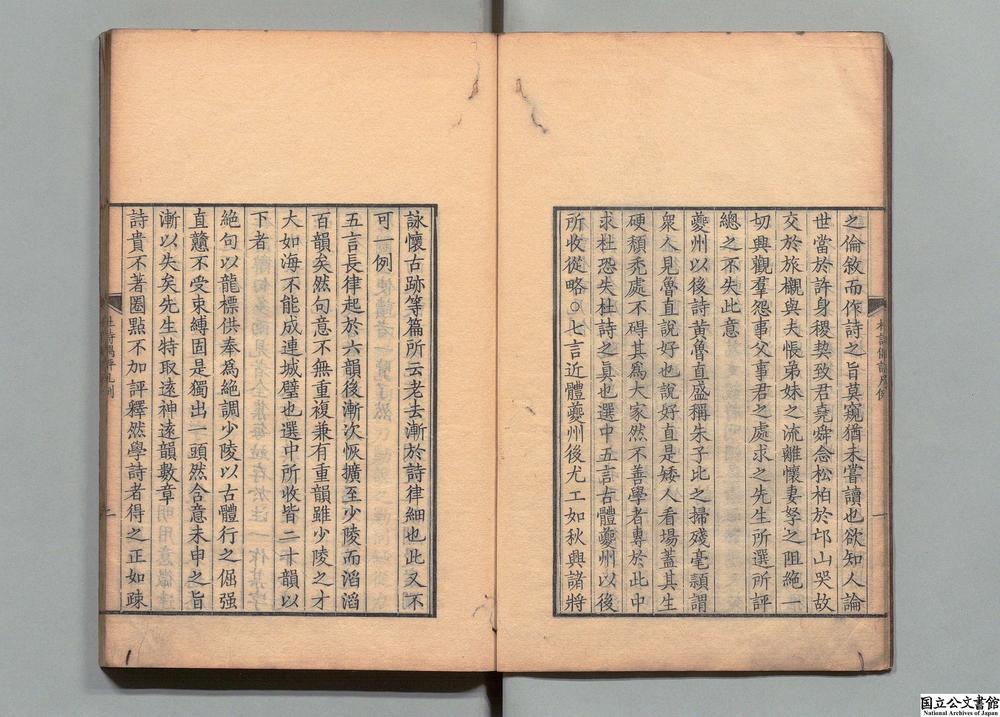 之倫敘而作詩之旨莫窺猶未嘗讀也欲知人論
世當於許身稷契致君堯舜念松柏於邙山哭故
交於旅櫬與夫悵弟妹之流離懷妻孥之阻絕一
切興觀羣怨事父事君之處求之先生所選所評
總之不失此意
夔州以後詩黄魯直盛稱朱子比之掃殘毫頴謂
衆人見魯直說好也說好直是矮人看場蓋其生
硬頹禿處不碍其爲大家然不善學者專於此中
求杜恐失杜詩之真也選中五言古體夔州以後
所收從略○七言近體夔州後尤工如秋興諸將
詠懷古跡等篇所云老去漸於詩律細也此又不
可一例
五言長律起於六韻後漸次恢擴至少陵而滔滔
百韻矣然句意不無重複兼有重韻雖少陵之才
大如海不能成連城璧也選中所收皆二十韻以
下者
絕句以龍標供奉爲絕調少陵以古體行之倔强
直戇不受束縛固是獨出一頭然含意未申之旨
漸以失矣先生特取遠神遠韻數章
詩貴不著圈點不加評釋然學詩者得之正如疎
杜詩偶評凡例
一
国立公文書館
National Archives of Japan